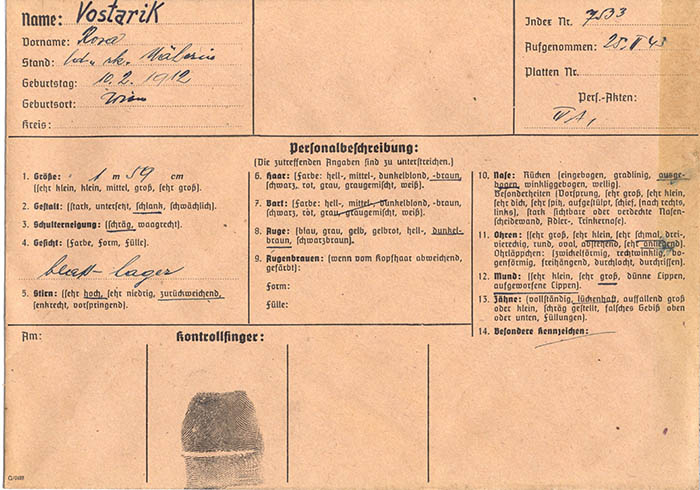 Name: Vostarik
Vorname: Rosa
Stand: led. rk. Näherin
Geburtstag: 10.2.1912
Geburtsort: Wien
Kreis:
Index Nr. 7533
Aufgenommen: 25.
Platten Nr.
Pers.-Akten:
Personalbeschreibung:
(Die zutreffenden Angaben sind zu unterstreichen.)
1. Größe: 1 m 59 cm
(sehr klein, klein, mittel, groß, sehr groß).
2. Gestalt: (stark, untersetzt, schlank, schwächlich).
3. Schulterneigung: (schräg, waagrecht).
4. Gesicht: (Farbe, Form, Fülle).
blass-
5. Stirn: (sehr hoch, sehr niedrig, zurückweichend,
senkrecht, vorspringend).
6. Haar: (Farbe: hell-, mittel-, dunkelblond, -braun,
schwarz, rot, grau, graugemischt, weiß).
7. Bart: (Farbe: hell-, mittel-, dunkelblond, -braun,
schwarz, rot, grau, graugemischt, weiß).
8. Auge: (blau, grau, gelb, gelbrot, hell-, dunkel-
braun, schwarzbraun).
9. Augenbrauen: (wenn vom Kopfhaar abweichend,
gefärbt):
Form:
Fülle:
10. Nase: Rücken (eingebogen, gradlinig, ausge-
bogen, winkliggebogen, wellig).
Besonderheiten (Vorsprung, sehr groß, sehr klein,
sehr dick, sehr spitz, aufgestülpt, schief, (nach rechts,
links), stark sichtbare oder verdeckte Nasen-
scheidewand, Adler-, Trinkernase).
11. Ohren: (sehr groß, sehr klein, sehr schmal, drei-,
viereckig, rund, oval, abstehend, sehr anliegend).
Ohrläppchen: (zwickelförmig, rechtwinklig, bo-
genförmig, freihängend, durchlocht, durchrissen).
12. Mund: (sehr klein, sehr groß, dünne Lippen,
aufgeworfene Lippen).
13. Zähne: (vollständig, lückenhaft, auffallend groß
oder klein, schräg gestellt, falsches Gebiß oben
oder unten, Füllungen).
14. Besondere Kennzeichen:
Am:
Kontrollfinger: